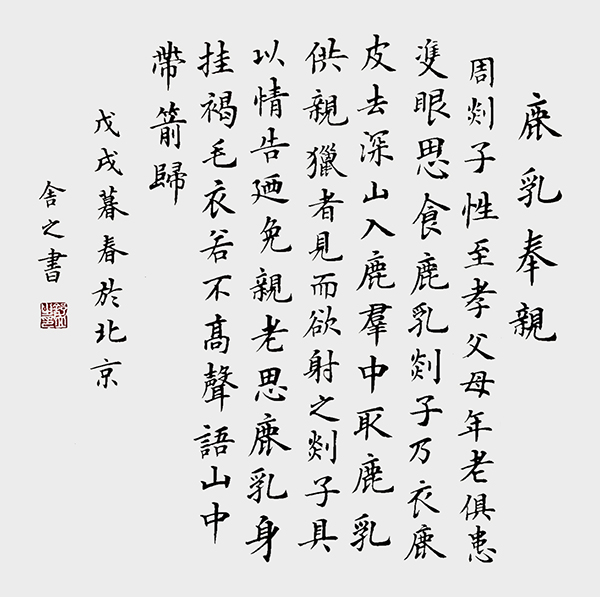 鹿乳奉親
周剡子性至孝父母年老俱患
雙眼思食鹿乳剡子乃衣鹿
皮去深山入鹿羣中取鹿乳
供親獵者見而欲射之剡子具
以情告廼免親老思鹿乳身
挂褐毛衣若不高聲語山中
帶箭歸
戊戌暮春於北京
舍之書